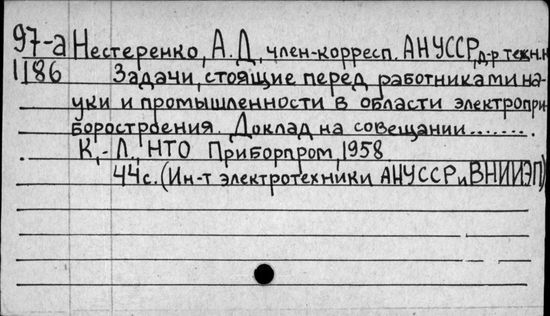 97-а Нестеренко, А.Д, член-корресп. АНУССР, д-р техн.н
1186 Задачи, стоящие перед работниками на-
уки и промышленности в области электропри-
боростроения. Доклад на совещании........
К,-Л., НТО Приборпром, 1958
44с. (Ин-т электротехники АНУССР и ВНИИЭП)